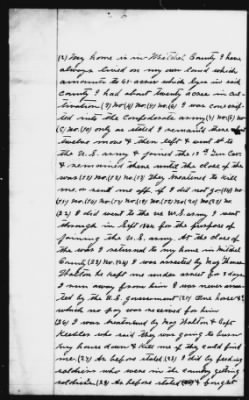 (2) My home is in Mitchel County I have
always lived on my own land which
amounts to 65 acres which lyes in said
county I had about twenty acres in cul-
tivation (3) No (4) No (5) No (6) I was conscrip-
ted into the Confederate army (7) No (8) No
No (10) only as stated I remained there
twelve mos & then left & went to
the U.S. army & joined the 13th Tenn Cav
& remained there untill the close of the
was (11) No (12) No (13) They threatened to kill
me or sent me off if I did not go
No No No No No No No No
(22) I did went to the U.S. army I went
through in Sept 1864 for the purpose of
joining the U.S. army. At the close of
the was I returned to my home in Mitchel
County (23) No (24) I was arrested by Maj Thomas
he kept me under arrest for 3 days
I run away from him I was never arres-
ted by the U.S. government (25) One horse &
which no pay was received for him
(26) I was threatened by Maj & Capt
Keebler who said they was going to burn
my house down & kill me if they could find
me. (27) As before stated (28) I did by feeding
soldiers who were in the country getting
soldiers (29) As before stated I fought